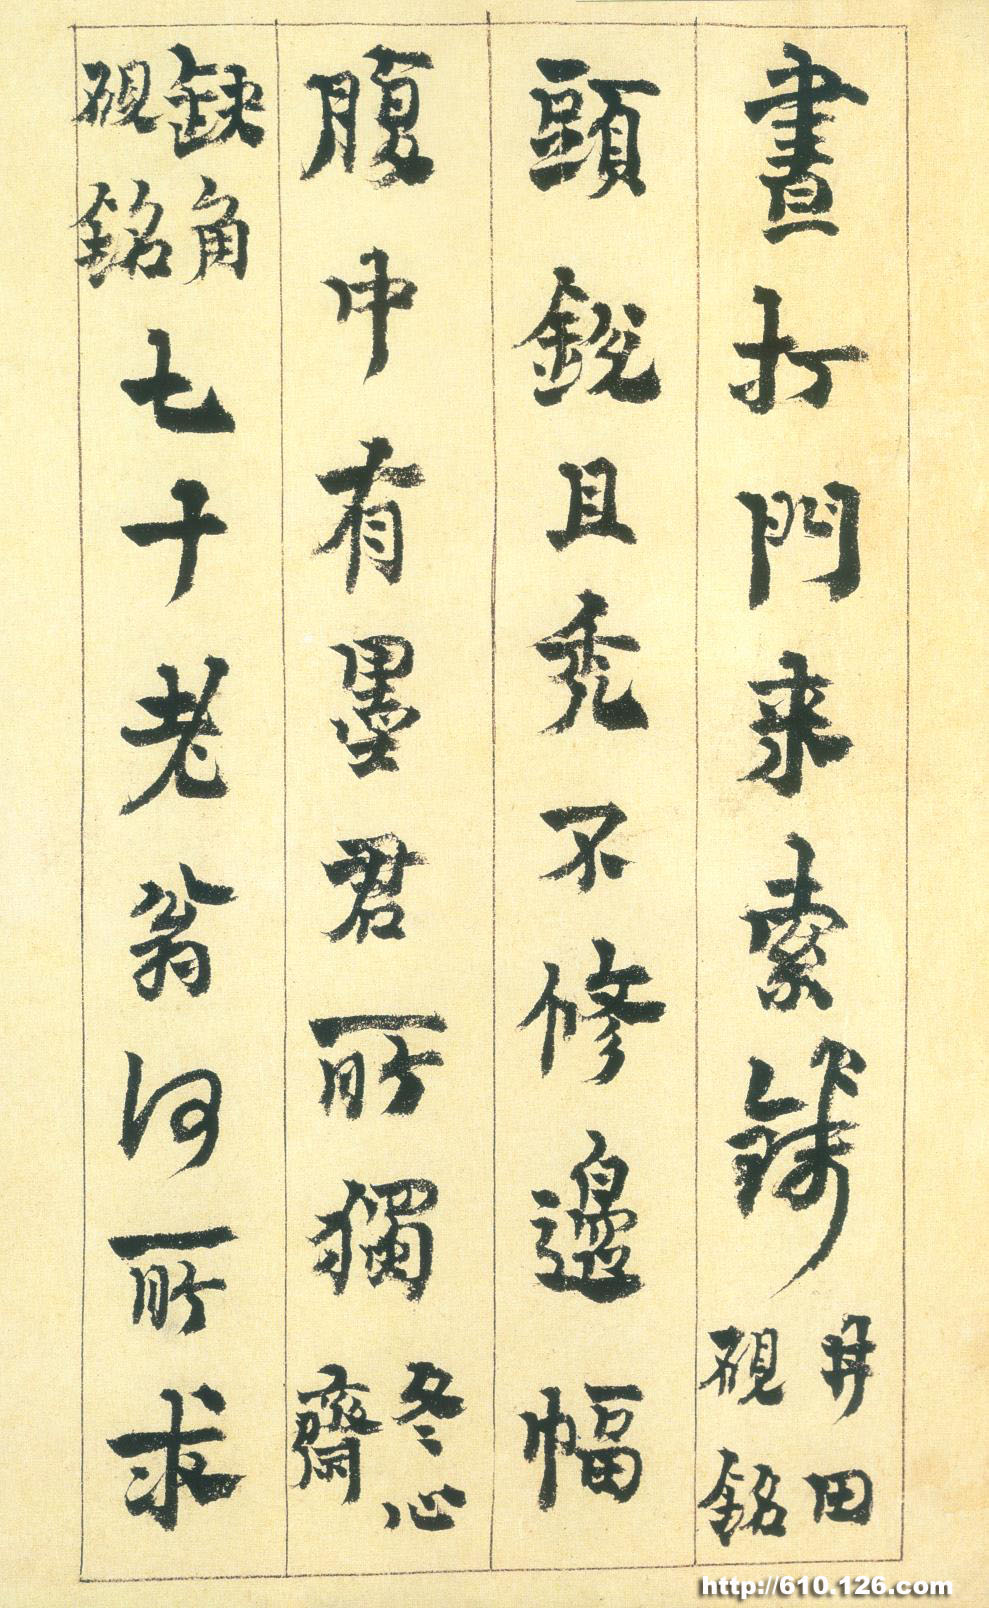 晝打門來索錢井田硯銘
頭銳且禿不修邊幅
腹中有墨君所獨冬心齋
硯銘缺角硯銘七十老翁何所求
http://610.126.com